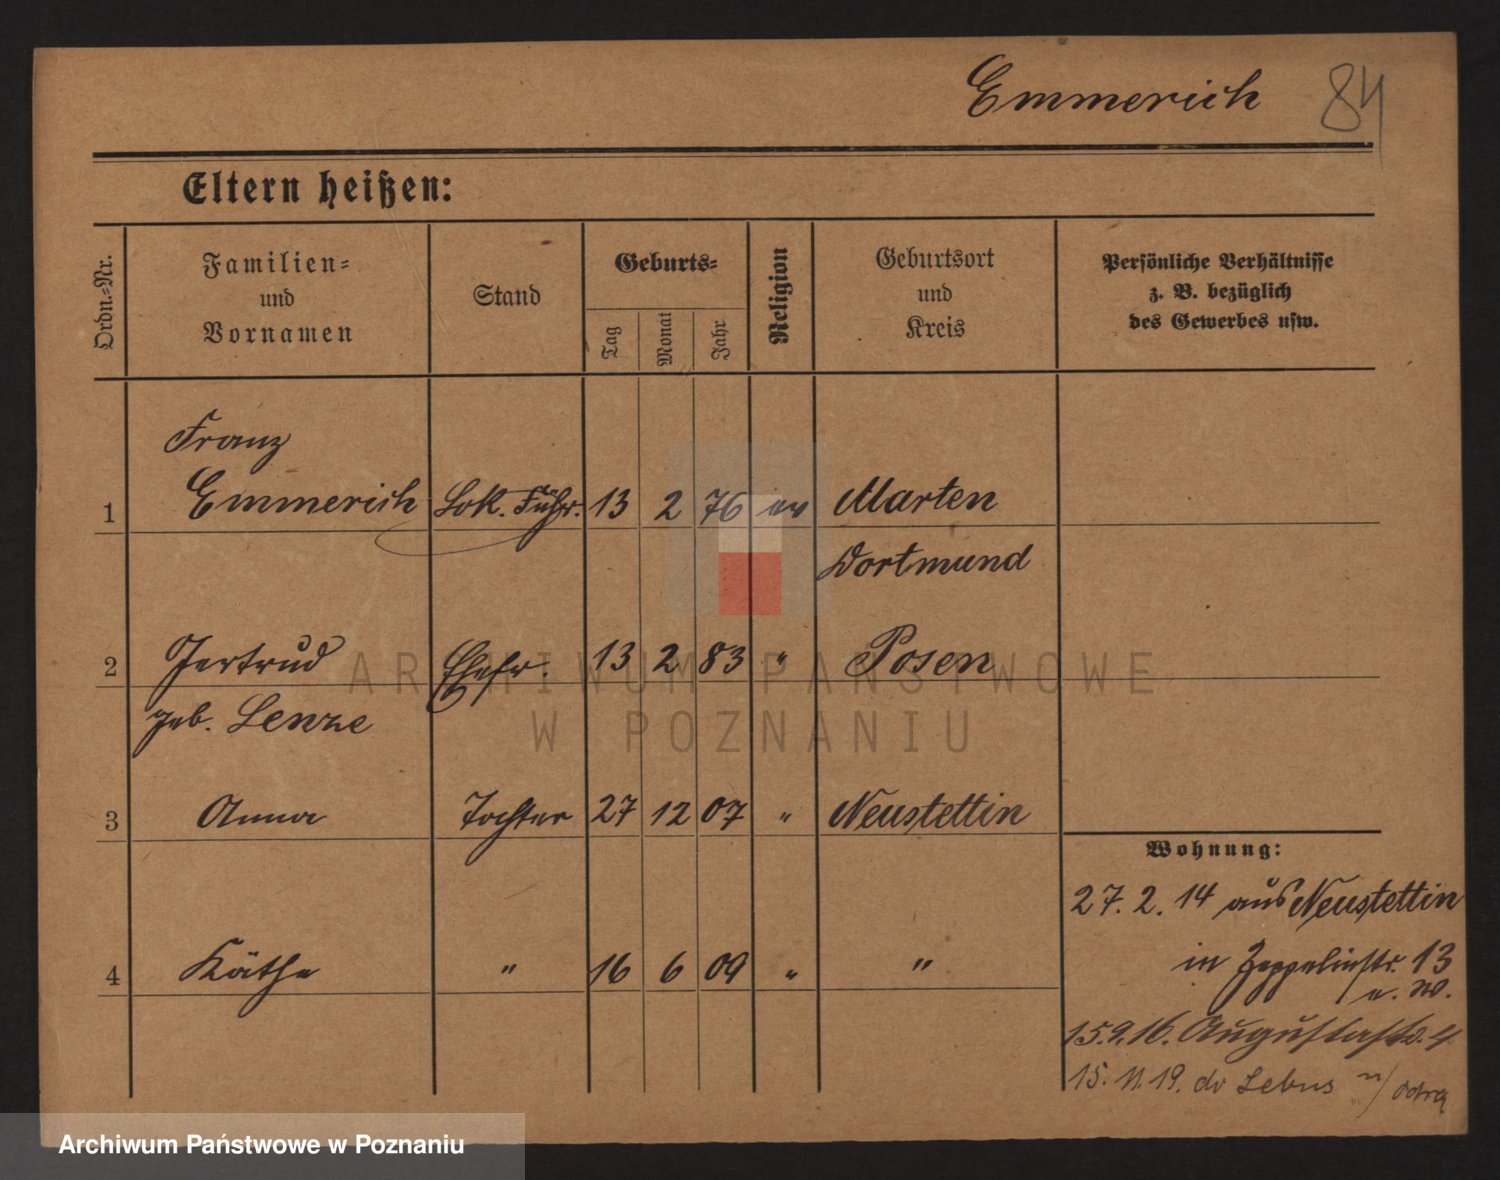 Emmerich 84
Eltern heißen:
Ordn.=Nr.
Familien=
und
Vornamen
Stand
Geburts=
Tag
Monat
Jahr
Religion
Geburtsort
und
Kreis
Persönliche Verhältnisse
z. B. bezüglich
des Gewerbes usw.
Franz
1 Emmerich Lok. Führ. 13 2 76 ev Marten
Dortmund
2 Gertrud Ehefr. 13 2 83 " Posen
geb. Lenze
3 Anna Tochter 27 12 07 " Neustettin
4 Käthe " 16 6 09 " "
Wohnung:
27. 2. 14 aus Neustettin
in Zeppelinstr. 13
15.9.16. Augustastr. 4
15. 11. 19. do Lebus n/ Odrą
ARCHIWUM PAŃSTWOWE
W POZNANIU
Archiwum Państwowe w Poznaniu